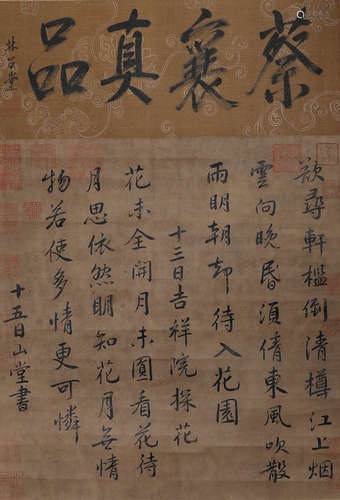 蔡襄真品
欲尋軒檻倒清樽江上烟
雲向晚昏須倩東風吹散
雨明朝却待入花園
十三日吉祥院探花
花未全開月未圓看花待
月思依然明知花月無情
物若使多情更可憐
十五日山堂書